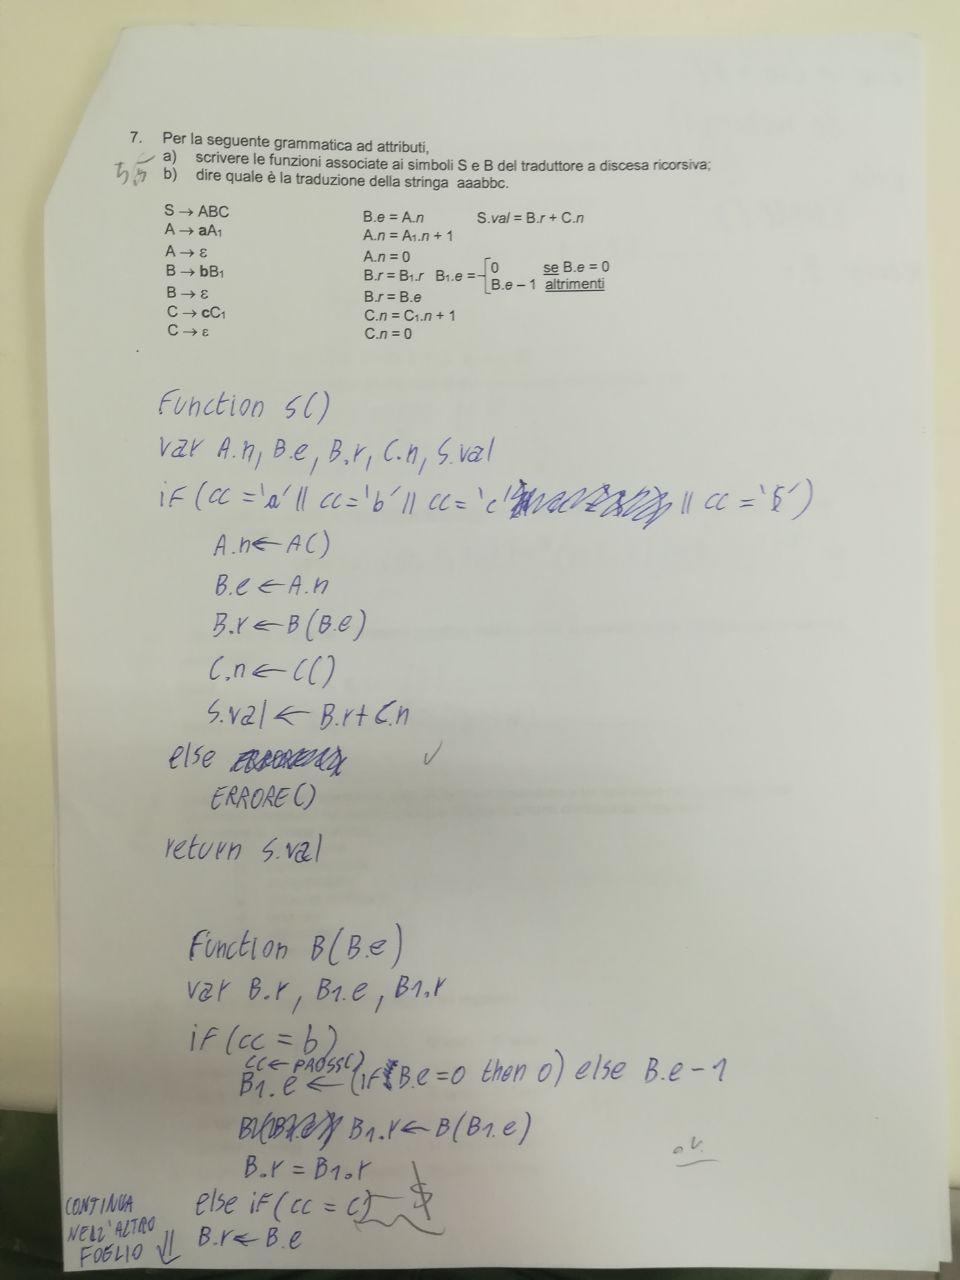 7. Per la seguente grammatica ad attributi,
a) scrivere le funzioni associate ai simboli S e B del traduttore a discesa ricorsiva;
b) dire quale è la traduzione della stringa aaabbc.
S → ABC B.e = A.n S.val = B.r + C.n
A → aA₁ A.n = A₁.n + 1
A → ε A.n = 0
B → bB₁ B.r = B₁.r B₁.e = 0 se B.e = 0
B.e – 1 altrimenti
B → ε B.r = B.e
C → cC₁ C.n = C₁.n + 1
C → ε C.n = 0
Function S()
var A.n, B.e, B.r, C.n, S.val
if (cc = 'a' || cc = 'b' || cc = 'c' || cc = '$')
A.n ← A()
B.e ← A.n
B.r ← B(B.e)
C.n ← C()
S.val ← B.r + C.n
else
ERRORE()
return S.val
Function B(B.e)
var B.r, B1.e, B1.r
if (cc = b)
cc ← PROSS()
B1.e ← (if (B.e = 0 then 0) else B.e - 1
B1.r ← B(B1.e)
B.r = B1.r
else if (cc = c) $
B.r ← B.e
CONTINUA
NELL'ALTRO
FOGLIO